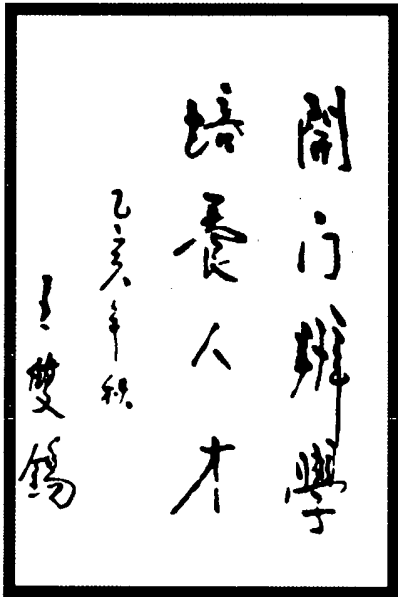 開门辦學
培養人才
乙亥年秋
王雙錫